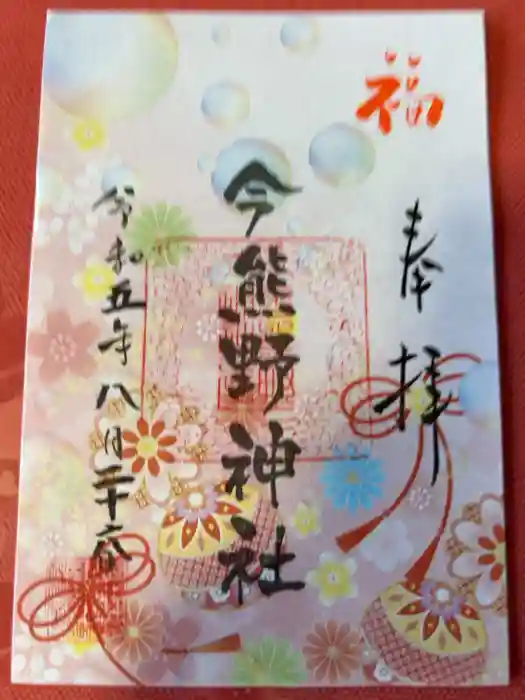 福
奉拝
今熊野神社
令和五年八月二十六日